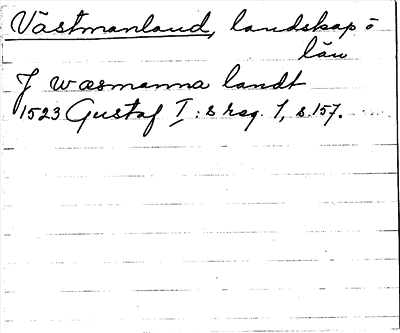 Västmanland, landskap o
län
J wæsmanna landt
1523 Gustaf I:s reg. 1, s. 157.